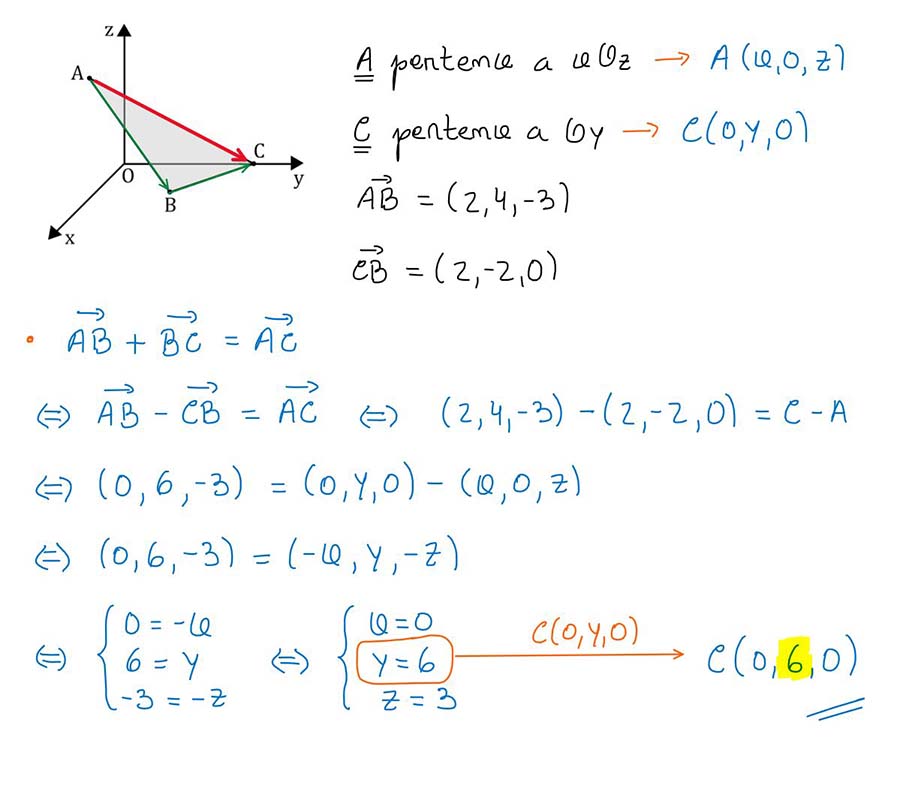 z
A
O
C
y
B
x
A pertence a xOz → A(x,0,z)
C pertence a Oy → C(0,y,0)
AB⃗ = (2,4,-3)
CB⃗ = (2,-2,0)
• AB⃗ + BC⃗ = AC⃗
⇔ AB⃗ - CB⃗ = AC⃗ ⇔ (2,4,-3)-(2,-2,0) = C-A
⇔ (0,6,-3) = (0,y,0)-(x,0,z)
⇔ (0,6,-3) = (-x,y,-z)
⇔ { 0=-x ⇔ { x=0
6=y y=6 C(0,y,0) → C(0,6,0)
-3=-z z=3